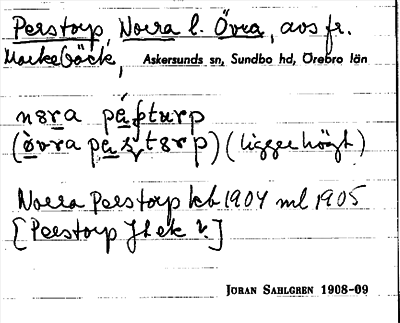 Perstorp, Norra l. Övra, avs fr.
Markebäck, Askersunds sn, Sundbo hd, Örebro län
(ligger högt)
Norra Perstorp kb 1904 ml 1905
[Perstorp Jb ek v.]
JÖRAN SAHLGREN 1908-09